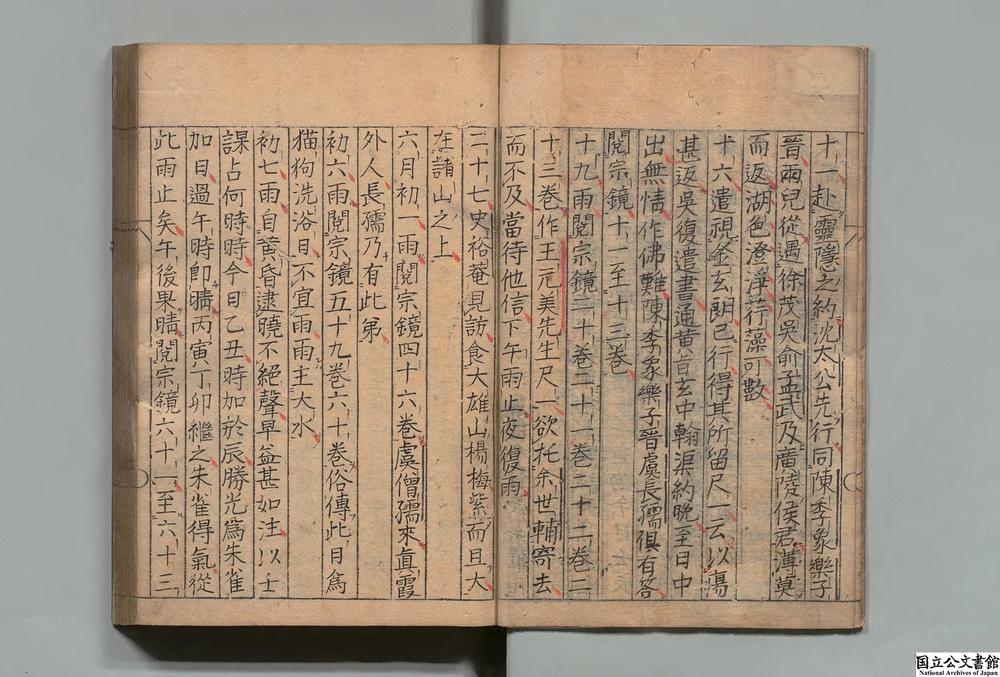 十一赴靈隱之約沈太公先行同陳季象樂子
晉兩兒從遇徐茂吳俞孟武及廣陵侯君薄莫
而返湖色澄淨荇藻可數
十六遣視金玄朗已行得其所留尺一云以瘍
甚返吳復遣書通黃白玄中翰渠約晚至日中
出無情作佛難陳季象樂子晉虞長孺俱有答
閱宗鏡十一至十三卷
十九雨閱宗鏡二十卷二十一卷二十二卷二
十三卷作王元美先生尺一欲托余世輔寄去
而不及當待他信下午雨止夜復雨
二十七史裕菴見訪食大雄山楊梅紫而且大
在諸山之上
六月初一雨閱宗鏡四十六卷虞僧孺來眞霞
外人長孺乃有此弟
初六雨閱宗鏡五十九卷六十卷俗傳此日為
猫狗洗浴日不宜雨雨主大水
初七雨自黃昏逮曉不絕聲早益甚如注以士
課占何時時今日乙丑時加於辰勝光為朱雀
加日過午時卽晴丙寅丁卯繼之朱雀得氣從
此雨止矣午後果晴閱宗鏡六十一至六十三
国立公文書館
National Archives of Japan